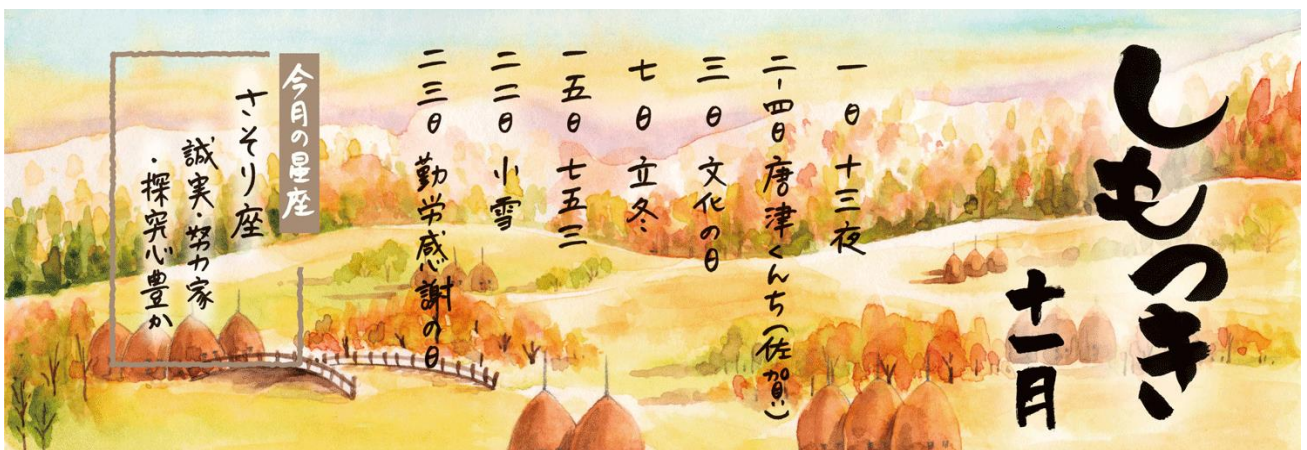 しもつき
十一月
一日 十三夜
二-四日 唐津くんち(佐賀)
三日 文化の日
七日 立冬
一五日 七五三
二二日 小雪
二三日 勤労感謝の日
今月の星座
さそり座
誠実・努力家
・探究心豊か